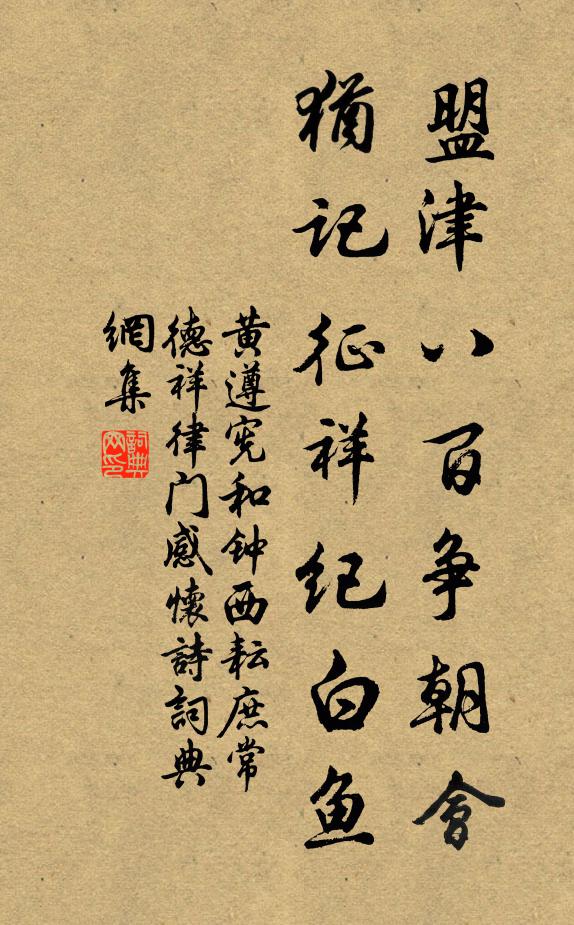 盟津八百争朝會
猶记征祥纪白鱼
黄遵宪和钟西耘庶常
德祥律门感懷詩詞典
網集
詞典网印